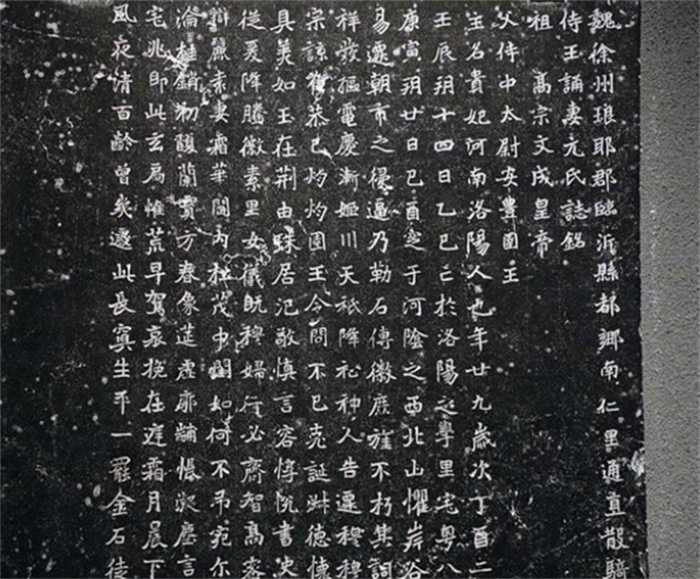 魏徐州琅耶郡臨沂縣都鄉南仁里通直散騎
侍王誦妻元氏誌銘
祖高宗文成皇帝
父侍中太尉安豐圉王
主名貴妃河南洛陽人也年廿九歲次丁酉二
壬辰朔十四日乙巳亡於洛陽之學里宅粵八
庚寅朔廿日己酉窆于河陰之西北山懼岸谷
易遷朝市之侵逼乃勒石傳徽庶旌不朽其詞
祥發樞電慶漸姬川天祇降祉神人告遷穆穆
宗諒恭已灼灼圉王令問不已克誕淑德懷
具美如玉在荊由珠居汜敬慎言容惇悅書史
從爰降騰徽素里女儀既穆婦行必齊智高密
麗素妻霜華閨內桂茂中閨如何不弔宛尓
淪桂銷初馥蘭實方春像筵虛廓黼悵凝塵言
宅兆即此玄扃惟荒早駕哀挽在庭霜月晨下
風夜清百齡曾幾遽此長冥生平一罷金石徒